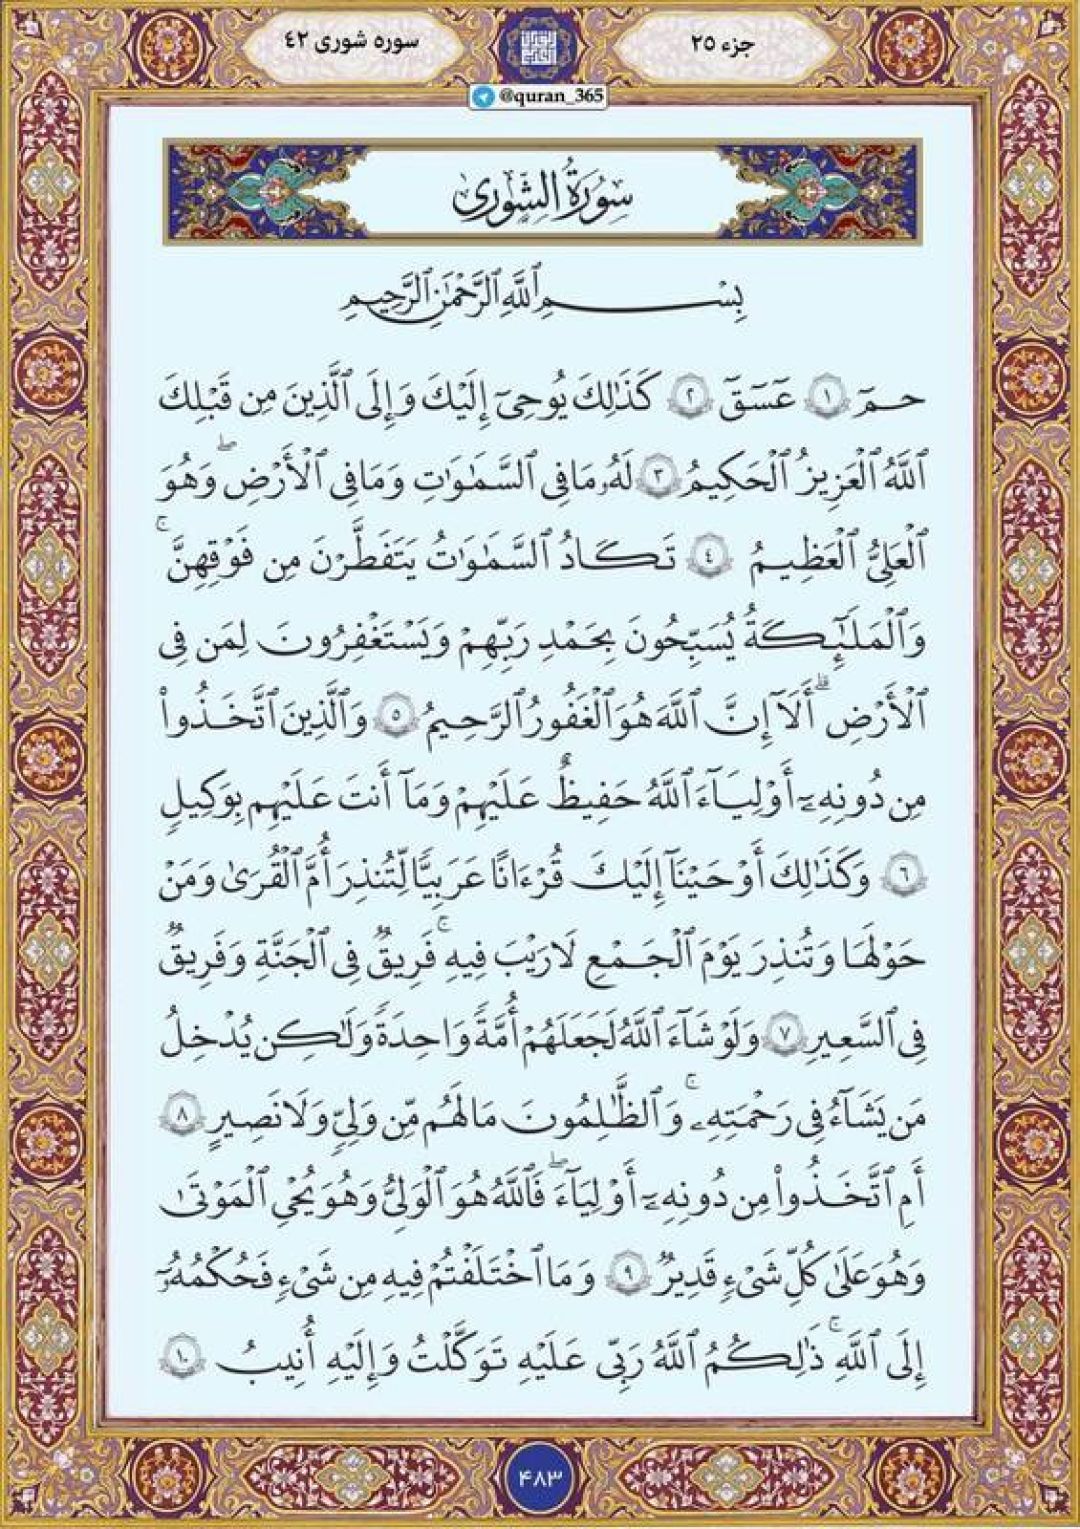 جزء ۲۵
سوره شوری ۴۲
@quran_365
سُورَةُ الشُّورَىٰ
بِسْمِ ٱللَّهِ ٱلرَّحْمَٰنِ ٱلرَّحِيمِ
حمٓ ١ عٓسٓقٓ ٢ كَذَٰلِكَ يُوحِىٓ إِلَيْكَ وَإِلَى ٱلَّذِينَ مِن قَبْلِكَ
ٱللَّهُ ٱلْعَزِيزُ ٱلْحَكِيمُ ٣ لَهُۥ مَا فِى ٱلسَّمَٰوَٰتِ وَمَا فِى ٱلْأَرْضِ ۖ وَهُوَ
ٱلْعَلِىُّ ٱلْعَظِيمُ ٤ تَكَادُ ٱلسَّمَٰوَٰتُ يَتَفَطَّرْنَ مِن فَوْقِهِنَّ ۚ
وَٱلْمَلَٰٓئِكَةُ يُسَبِّحُونَ بِحَمْدِ رَبِّهِمْ وَيَسْتَغْفِرُونَ لِمَن فِى
ٱلْأَرْضِ ۗ أَلَآ إِنَّ ٱللَّهَ هُوَ ٱلْغَفُورُ ٱلرَّحِيمُ ٥ وَٱلَّذِينَ ٱتَّخَذُوا۟
مِن دُونِهِۦٓ أَوْلِيَآءَ ٱللَّهُ حَفِيظٌ عَلَيْهِمْ وَمَآ أَنتَ عَلَيْهِم بِوَكِيلٍ
٦ وَكَذَٰلِكَ أَوْحَيْنَآ إِلَيْكَ قُرْءَانًا عَرَبِيًّا لِّتُنذِرَ أُمَّ ٱلْقُرَىٰ وَمَنْ
حَوْلَهَا وَتُنذِرَ يَوْمَ ٱلْجَمْعِ لَا رَيْبَ فِيهِ ۚ فَرِيقٌ فِى ٱلْجَنَّةِ وَفَرِيقٌ
فِى ٱلسَّعِيرِ ٧ وَلَوْ شَآءَ ٱللَّهُ لَجَعَلَهُمْ أُمَّةً وَٰحِدَةً وَلَٰكِن يُدْخِلُ
مَن يَشَآءُ فِى رَحْمَتِهِۦ ۚ وَٱلظَّٰلِمُونَ مَا لَهُم مِّن وَلِىٍّ وَلَا نَصِيرٍ ٨
أَمِ ٱتَّخَذُوا۟ مِن دُونِهِۦٓ أَوْلِيَآءَ ۖ فَٱللَّهُ هُوَ ٱلْوَلِىُّ وَهُوَ يُحْىِ ٱلْمَوْتَىٰ
وَهُوَ عَلَىٰ كُلِّ شَىْءٍ قَدِيرٌ ٩ وَمَا ٱخْتَلَفْتُمْ فِيهِ مِن شَىْءٍ فَحُكْمُهُۥٓ
إِلَى ٱللَّهِ ۚ ذَٰلِكُمُ ٱللَّهُ رَبِّى عَلَيْهِ تَوَكَّلْتُ وَإِلَيْهِ أُنِيبُ ١٠
۴۸۳